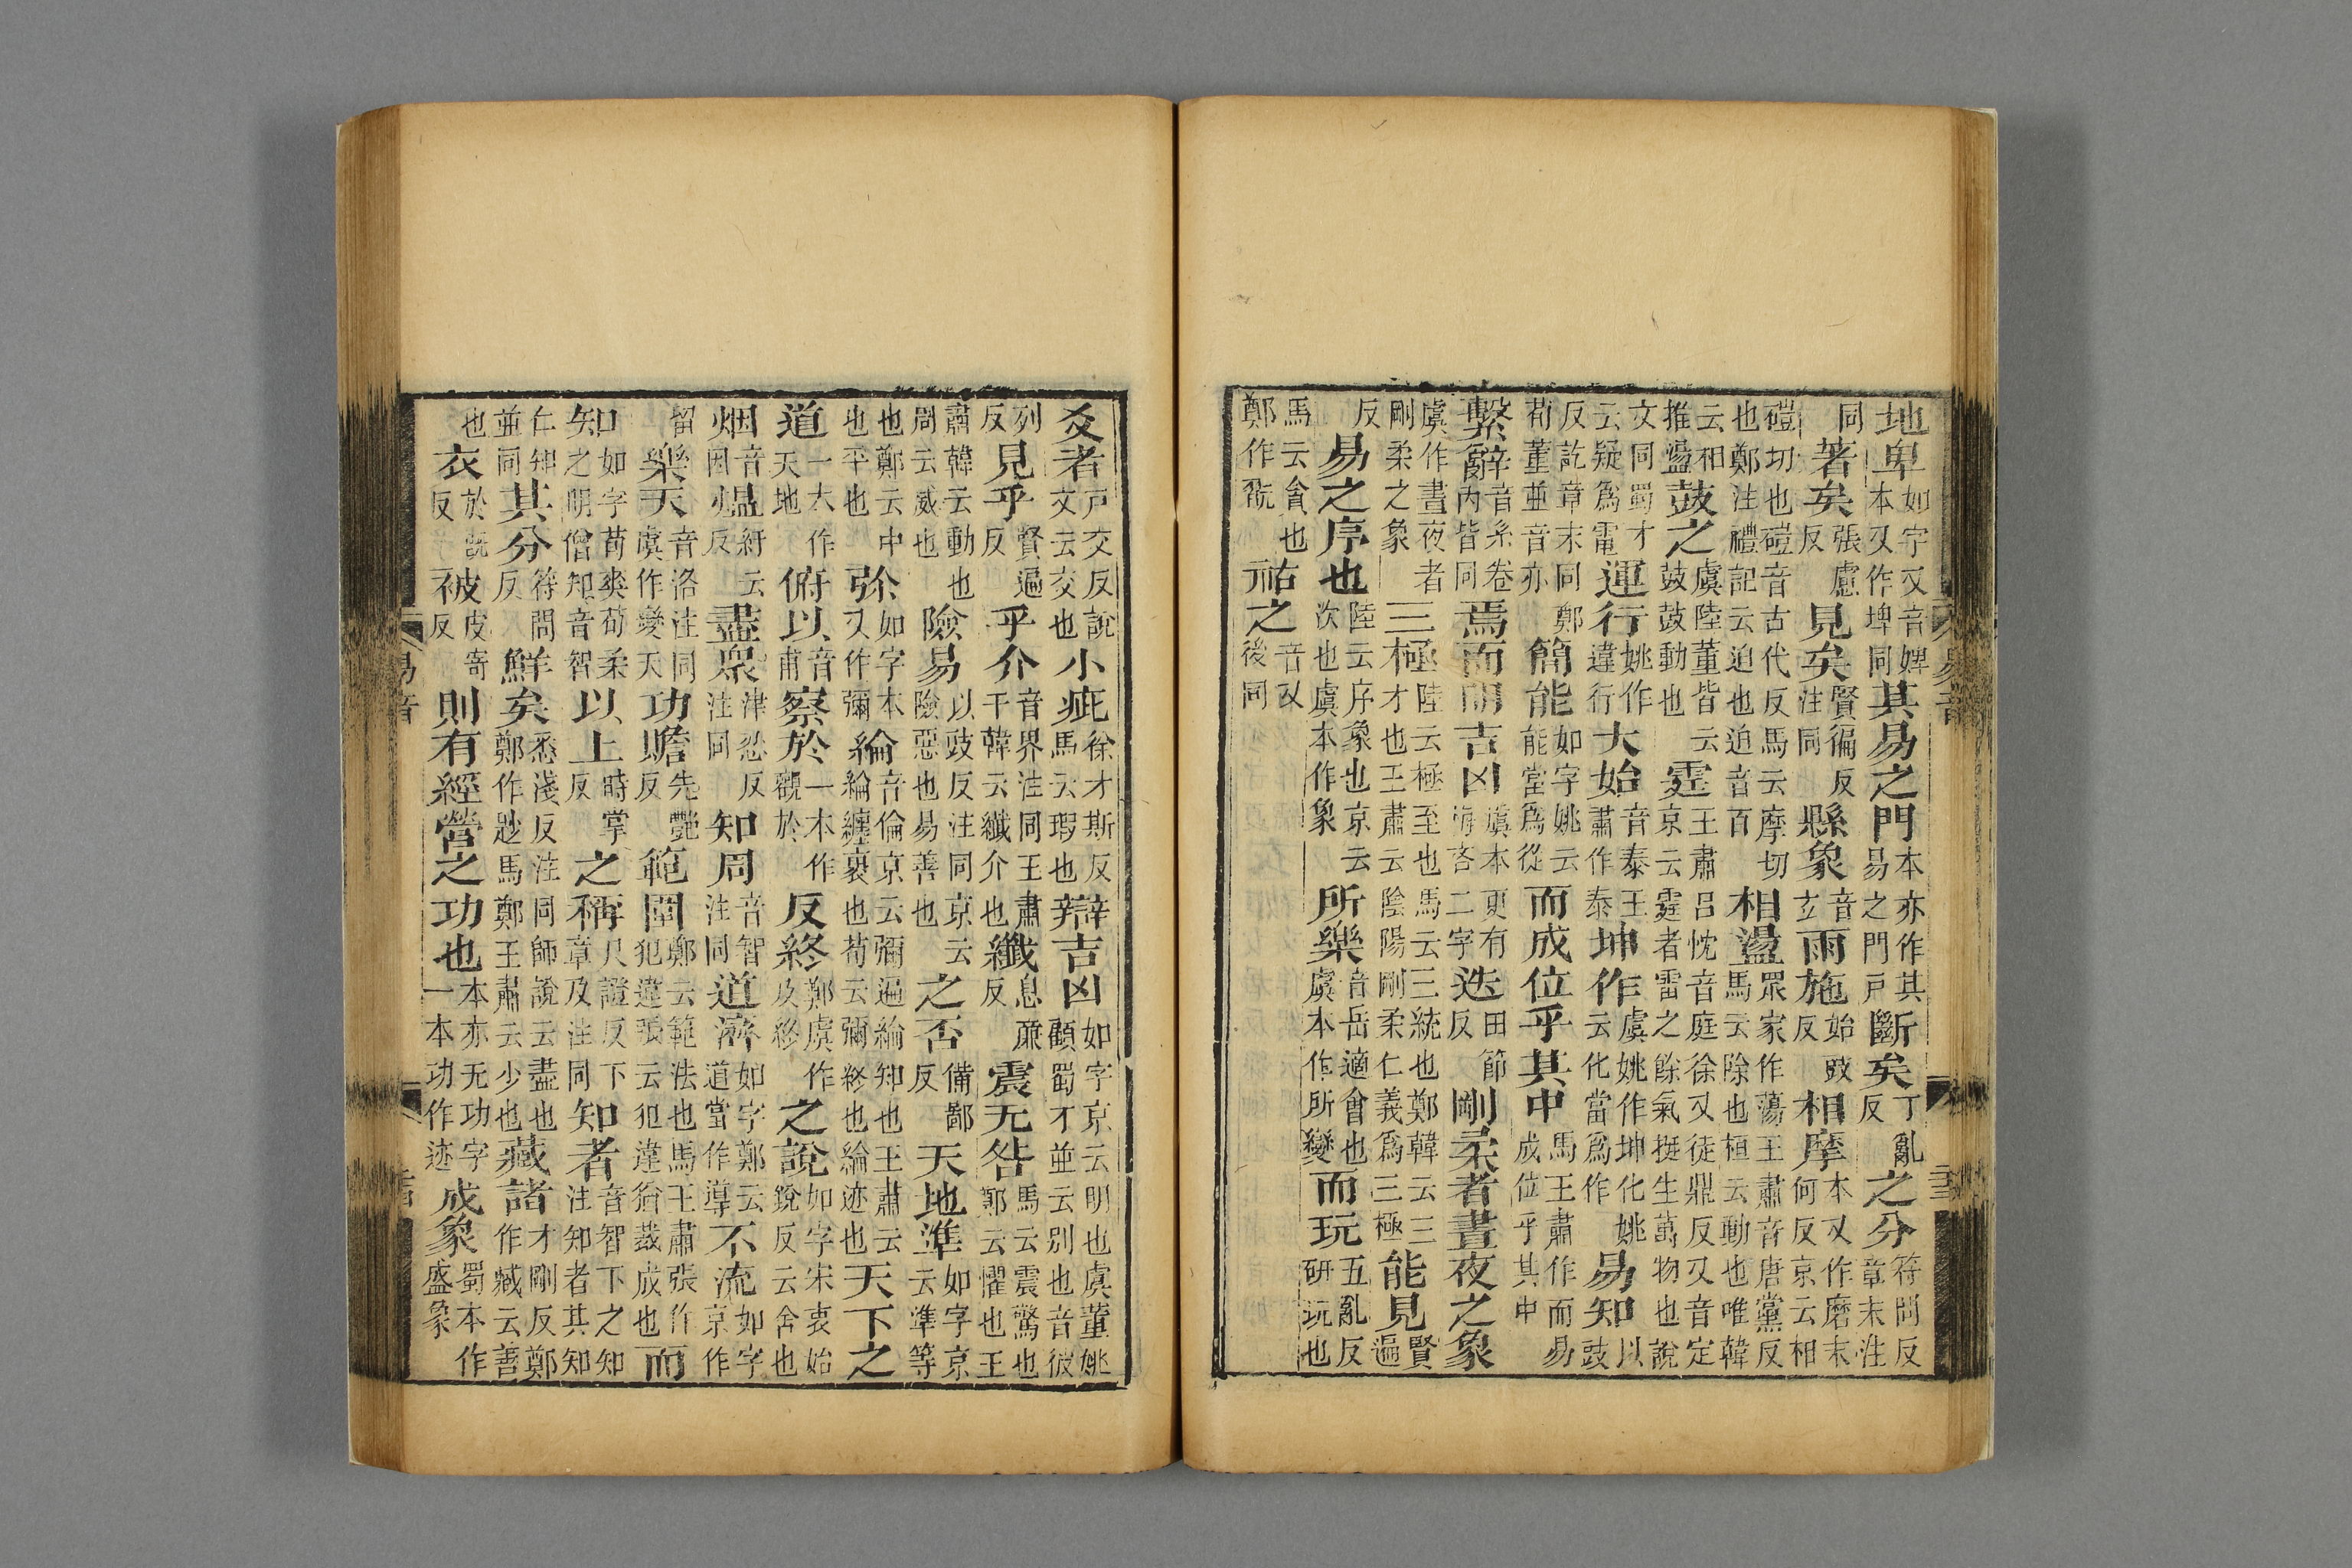 地卑如字又音婢本又作埤同其易之門本亦作其易之門戶斷矣丁亂反之分符問反章末注
同著矣張慮反見矣賢徧反注同縣象音玄雨施始豉反相摩本又作磨末何反京云相
磑切也磑音古代反馬云摩切也鄭注禮記云迫也迫音百相盪眾家作蕩王肅音唐黨反馬云除也桓云動也唯韓
云相推盪鼓之虞陸董皆云鼓鼓動也霆王肅呂忱音庭徐又徒鼎反又音定京云霆者雷之餘氣挺生萬物也說
文同蜀才云疑爲電運行姚作違行大始音泰王肅作泰坤作虞姚作坤化姚云化當爲作易知以豉
反訖章末同鄭荀董並音亦簡能如字姚云能當爲從而成位乎其中馬王肅作而易成位乎其中
繫辭音系卷內皆同焉而明吉凶虞本更有悔吝二字迭田節反剛柔者晝夜之象
虞作晝夜者剛柔之象三極陸云極至也馬云三統也鄭韓云三才也王肅云陰陽剛柔仁義爲三極能見賢遍
反易之序也陸云序象也京云次也虞本作象所樂音岳適會也虞本作所變而玩五亂反研玩也
馬云貪也鄭作翫祐之音又後同
爻者戶交反說文云交也小疵徐才斯反馬云瑕也辯吉凶如字京云明也虞董姚顧蜀才並云別也音彼
列反見乎賢遍反乎介音界注同王肅干韓云纖介也纖息廉反震无咎馬云震驚也鄭云懼也王
肅韓云動也周云威也險易以豉反注同京云險惡也易善也之否備鄙反天地準如字京云準等
也鄭云中也平也弥如字本又作彌綸音倫京云彌遍綸知也王肅云綸纏裹也荀云彌終也綸迹也天下之
道一本作天地俯以音甫察於一本作觀於反終鄭虞作及終之說如字宋衷始銳反云舍也
烟音因熅紆云反盡眾津忍反注同知周音智注同道濟如字鄭云道當作導不流如字京作
留樂天音洛注同虞作變天功贍先豔反範圍鄭云範法也馬王肅張作犯違張云犯違猶裁成也而
知如字荀爽荀柔之明僧紹音智以上時掌反之稱尺證反章及注同知者音智下之知注知者其知
仁知並同其分符問反鮮矣悉淺反注同師說云盡也鄭作尟馬鄭王肅云少也藏諸才剛反鄭作臧云善
也衣於既反被皮寄反則有經營之功也本亦无功字一本功作迹成象蜀本作盛象
易音
易音